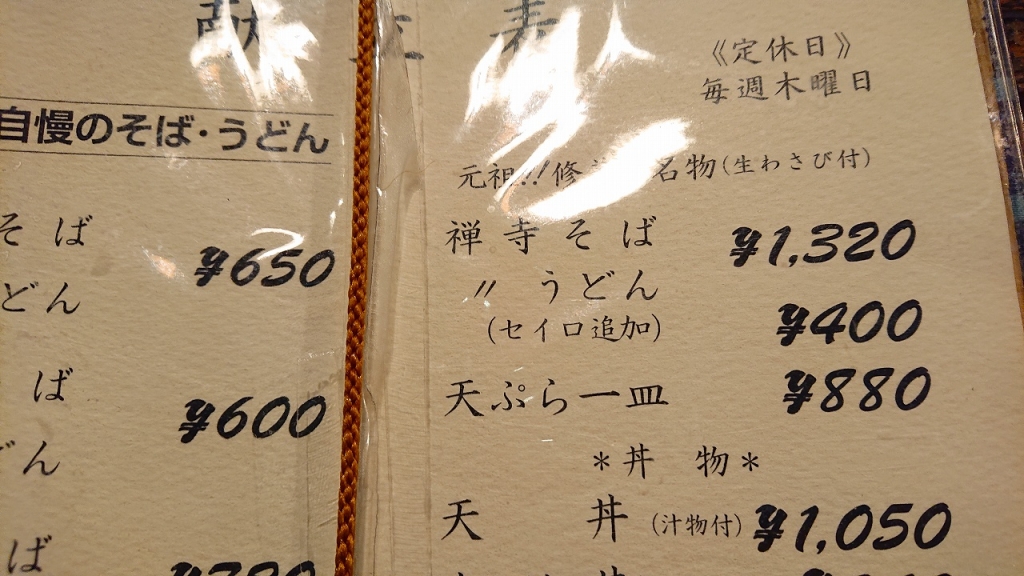 献立表
自慢のそば・うどん
そば
¥650
どん
ば
¥600
どん
ば
¥780
《定休日》
毎週木曜日
元祖!!修 名物(生わさび付)
禅寺そば ¥1,320
〃 うどん
(セイロ追加) ¥400
天ぷら一皿 ¥880
*丼 物*
天 丼 (汁物付) ¥1,050
丼